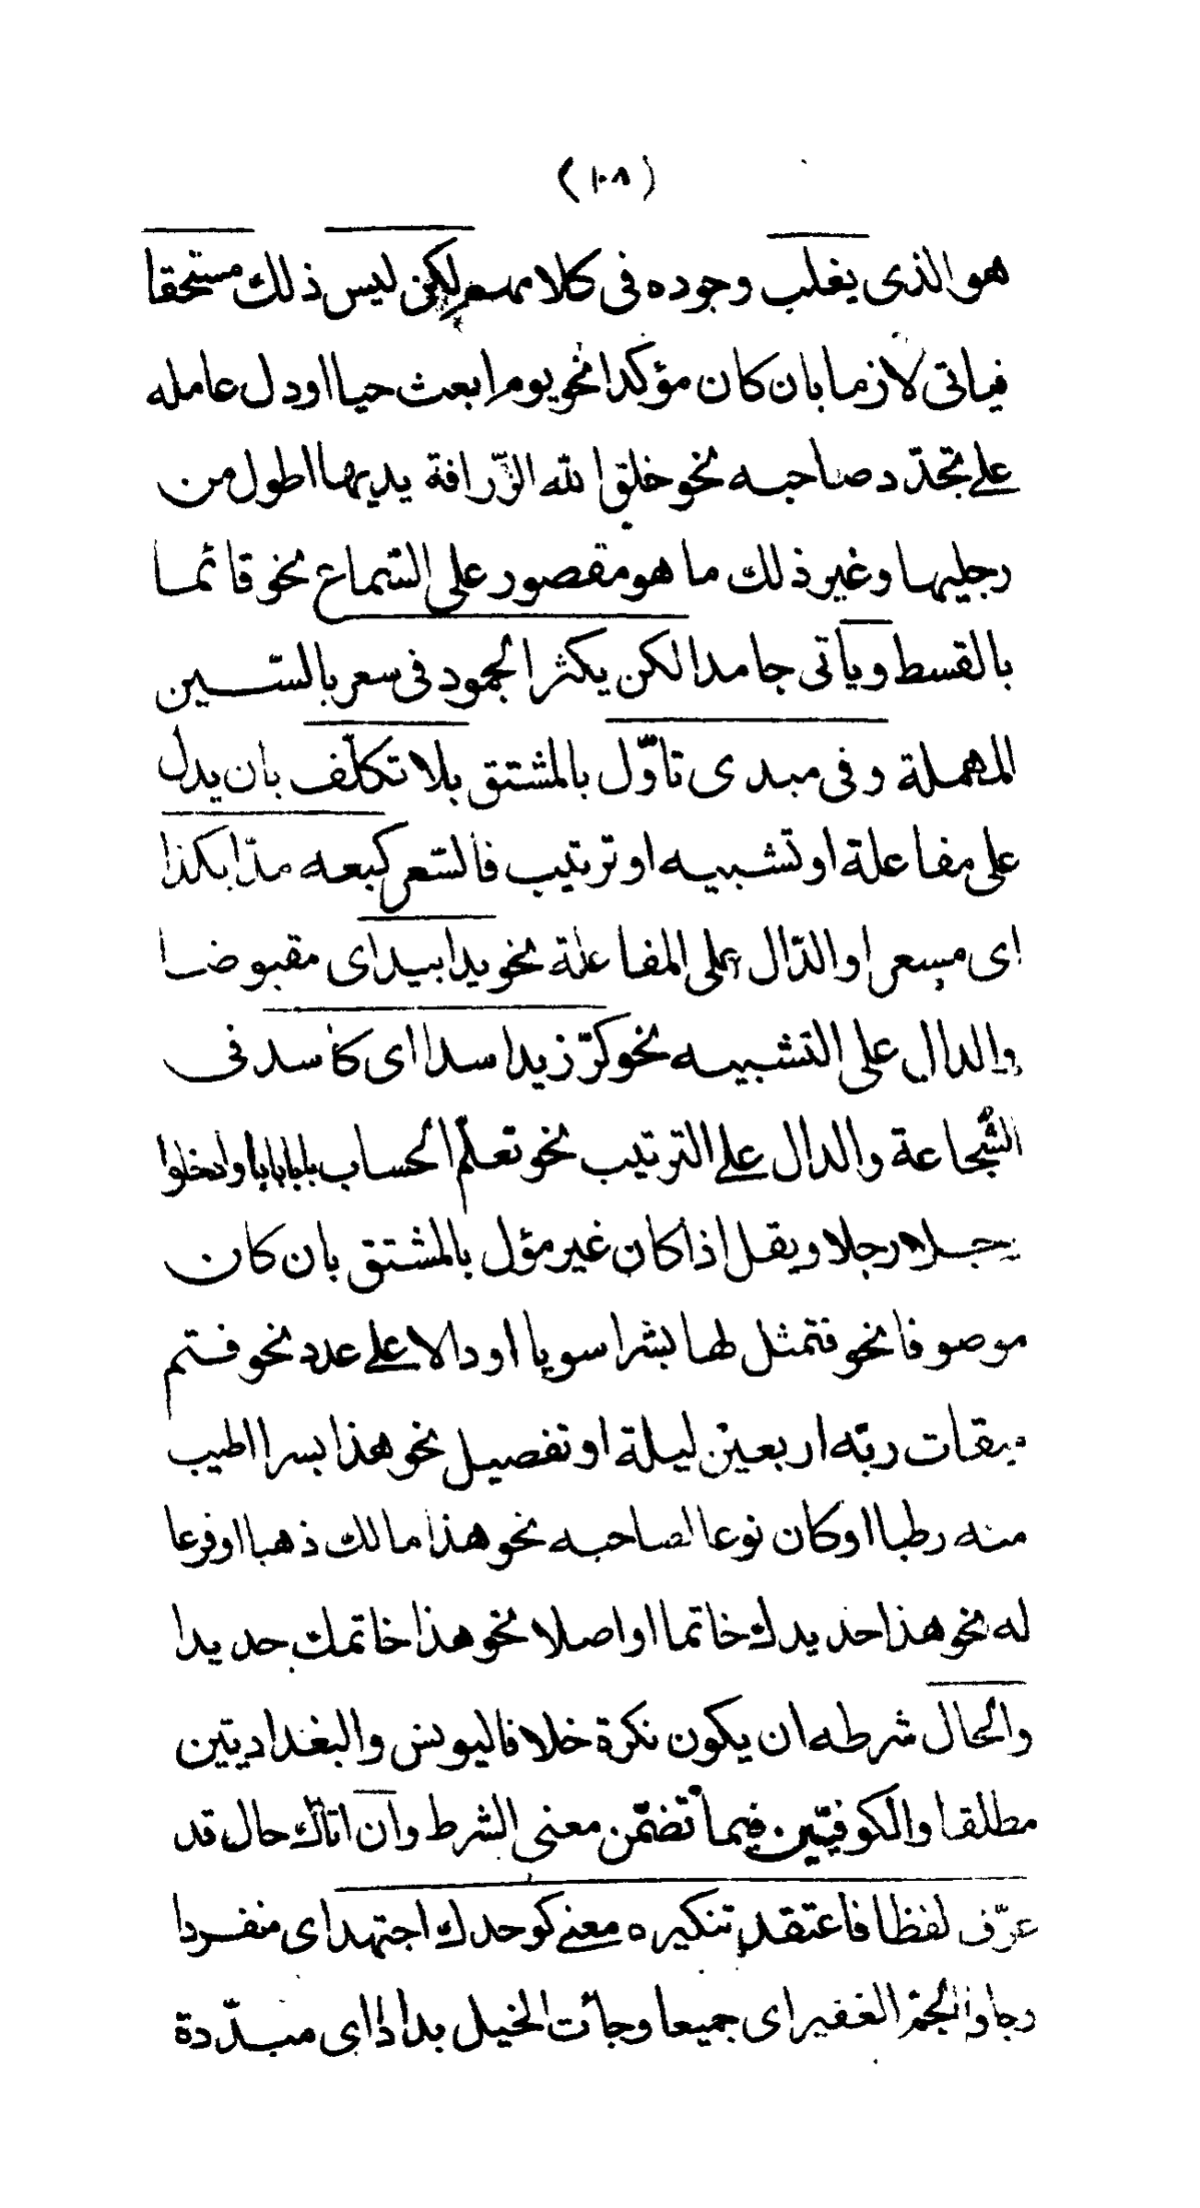 (١٠٨)
هو الذى يغلب وجوده فى كلامهم لكن ليس ذلك مستحقا
فياتى لازما بان كان مؤكدا نحو يوم ابعث حيا او دل عامله
على تجدّد صاحبه نحو خلق الله الزّرافة يديها اطول من
رجليها وغير ذلك ما هو مقصور على السّماع نحو قائما
بالقسط ويأتى جامدا لكن يكثر الجمود فى سعر بالسّين
المهملة وفى مبدى تاوّل بالمشتق بلا تكلّف بان يدل
على مفاعلة او تشبيه او ترتيب فالسّعر كبعه مدّا بكذا
اى مسعرا والدّال على المفاعلة نحو يدا بيد اى مقبوضا
والدال على التشبيه نحو كرّ زيد اسدا اى كاسد فى
الشّجاعة والدال على الترتيب نحو تعلّم الحساب بابا بابا وادخلوا
رجلا رجلا ويقل اذا كان غير مؤل بالمشتق بان كان
موصوفا نحو فتمثل لها بشرا سويا او دالا على عدد نحو فتم
ميقات ربّه اربعين ليلة او تفصيل نحو هذا بسرا اطيب
منه رطبا او كان نوعا لصاحبه نحو هذا مالك ذهبا او فرعا
له نحو هذا حديدك خاتما او اصلا نحو هذا خاتمك حديدا
والحال شرطه ان يكون نكرة خلافا ليونس والبغداديّين
مطلقا والكوفيّين فيما تضمّن معنى الشرط وان اتاك حال قد
عرّف لفظا فاعتقد تنكيره معنى كوحدك اجتهد اى منفردا
وجاؤا الجمّ الغفير اى جميعا وجائت الخيل بداد اى مبدّدة